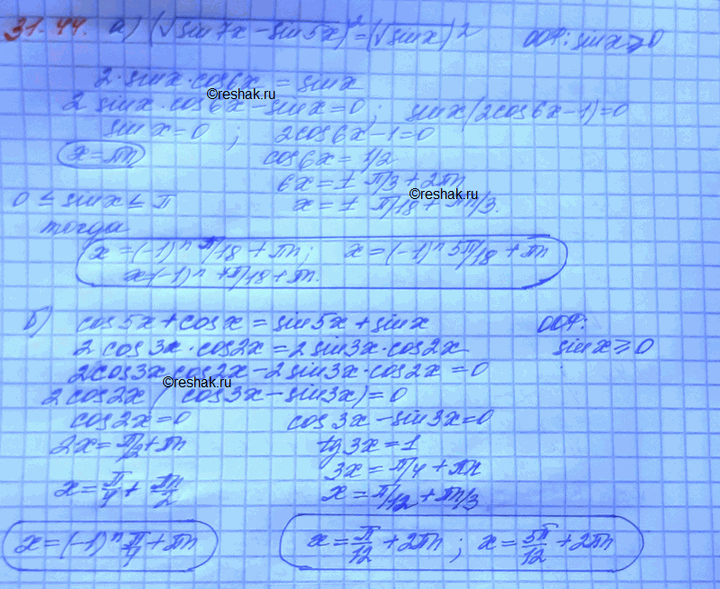 31.44. а) (√sin7x - sin5x)² = (√sinx)² ООУ: sinx≥0
2·sinx·cos6x = sinx
©reshak.ru
2 sinx·cos6x - sinx=0; sinx(2cos6x-1)=0
sinx=0; 2cos6x-1=0
x=πn cos6x=1/2
6x=± π/3+2πn
©reshak.ru
0 ≤ sinx ≤ π x=± π/18+πn/3.
тогда
x=(-1)ⁿ π/18+πn; x=(-1)ⁿ 5π/18+πn
x(-1)ⁿ +π/18+πn.
б) cos5x+cosx=sin5x+sinx ООУ:
2cos3x·cos2x=2sin3x·cos2x sinx≥0
2cos3x cos2x-2sin3x·cos2x=0
©reshak.ru
2cos2x(cos3x-sin3x)=0
cos2x=0 cos3x-sin3x=0
2x=π/2+πn tg3x=1
3x=π/4+πn
x=π/4+πn/2 x=π/12+πn/3
x=(-1)ⁿ π/4+πn x=π/12+2πn; x=5π/12+2πn